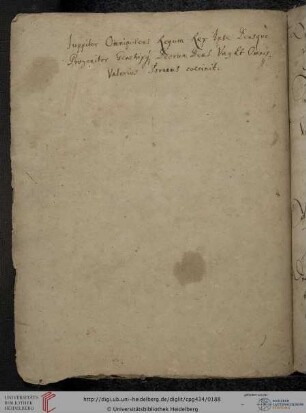 Juppiter Omnipotens Regum Rex Ipse Deusque
Progenitor Genetrixque Deorum Deus Unus Et Omnis.
Valerius Soranus cecinit.
UNIVERSITÄTS-
BIBLIOTHEK
HEIDELBERG
http://digi.ub.uni-heidelberg.de/diglit/cpg434/0188
© Universitätsbibliothek Heidelberg